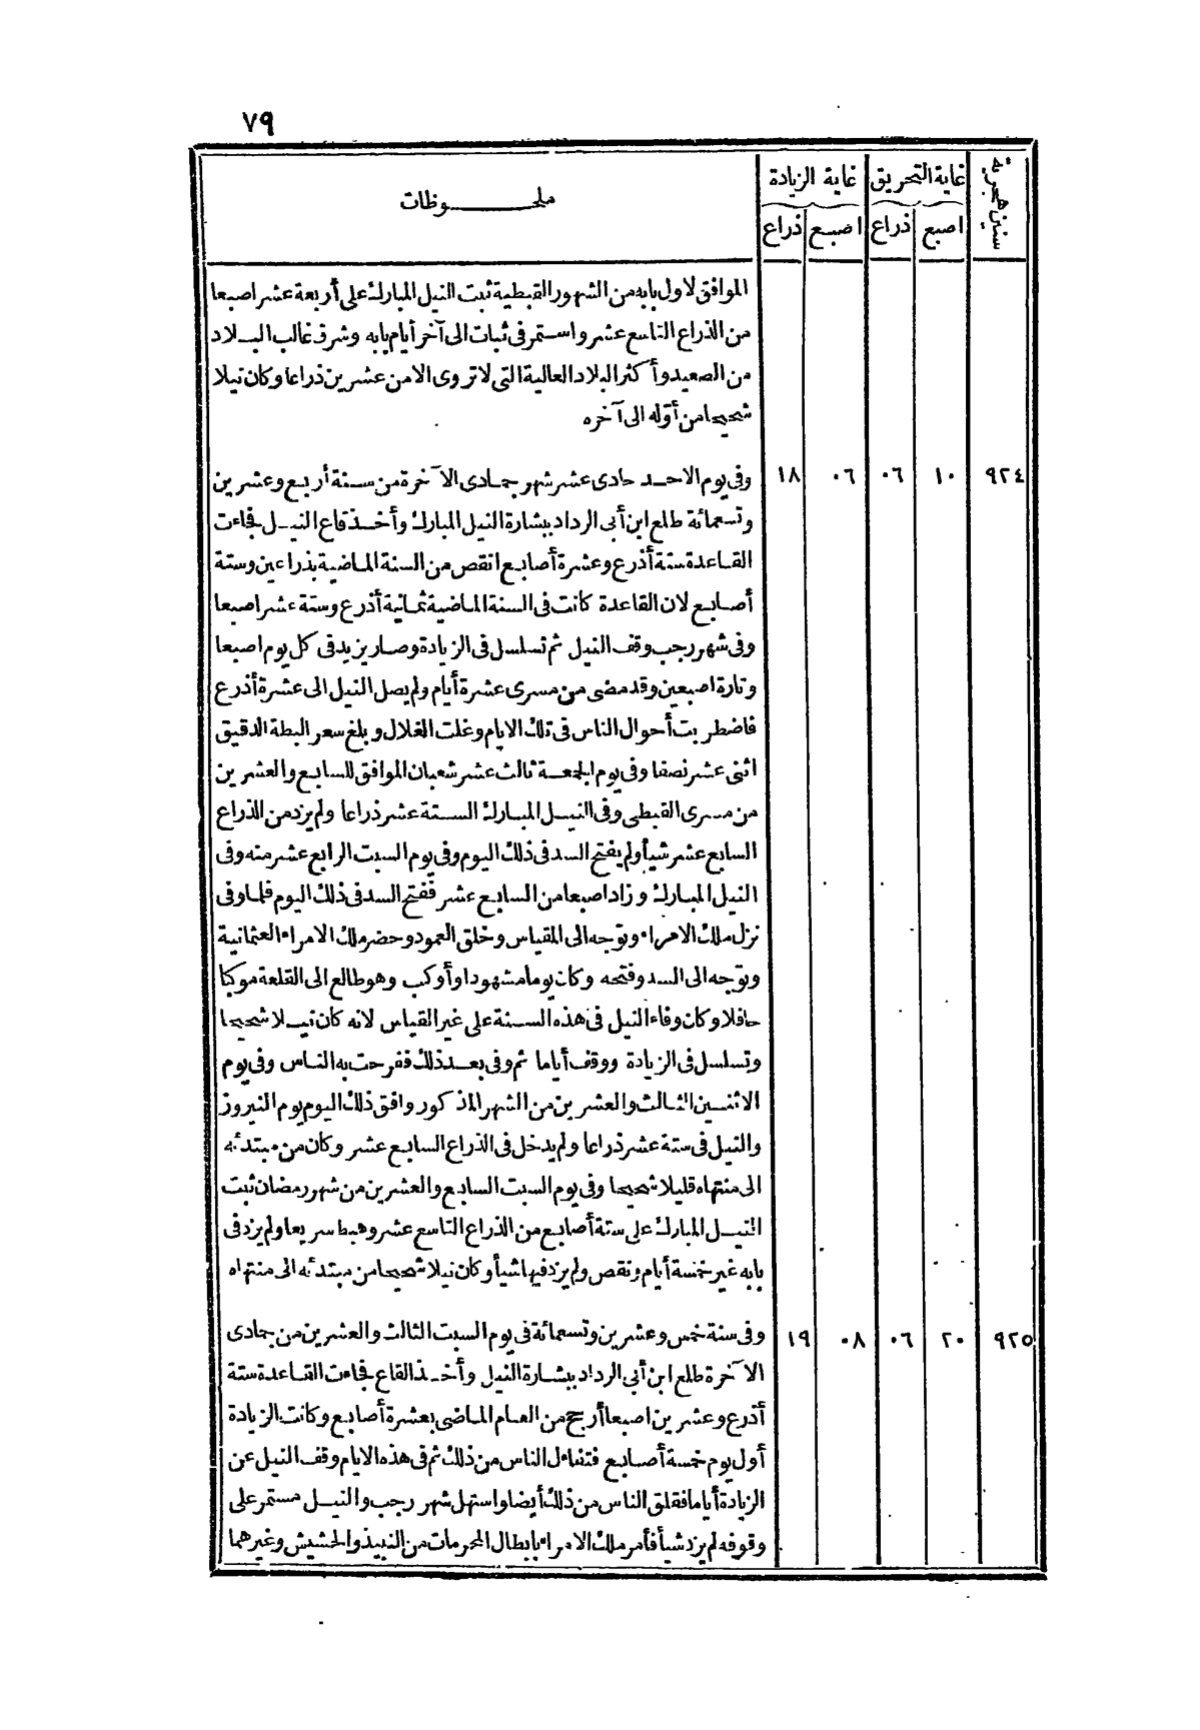 ٧٩
سنين هجرية
غاية التحريق
غاية الزيادة
ملحـــوظات
اصبع
ذراع
اصبع
ذراع
الموافق لاول بابه من الشهور القبطية ثبت النيل المبارك على أربعة عشر اصبعا
من الذراع التاسع عشر واستمر فى ثبات الى آخر أيام بابه وشرق غالب البلاد
من الصعيد وأكثر البلاد العالية التى لا تروى الا من عشرين ذراعا وكان نيلا
شحيحا من أوّله الى آخره
٩٢٤
١٠
٠٦
٠٦
١٨
وفى يوم الاحد حادى عشر شهر جمادى الآخرة من سنة أربع وعشرين
وتسعمائة طلع ابن أبى الرداد ببشارة النيل المبارك وأخذ قاع النيل فجاءت
القاعدة ستة أذرع وعشرة أصابع انقص من السنة الماضية بذراعين وستة
أصابع لان القاعدة كانت فى السنة الماضية ثمانية أذرع وستة عشر اصبعا
وفى شهر رجب وقف النيل ثم تسلسل فى الزيادة وصار يزيد فى كل يوم اصبعا
وتارة اصبعين وقد مضى من مسرى عشرة أيام ولم يصل النيل الى عشرة أذرع
فاضطربت أحوال الناس فى تلك الايام وغلت الغلال وبلغ سعر البطة الدقيق
اثنى عشر نصفا وفى يوم الجمعة ثالث عشر شعبان الموافق للسابع والعشرين
من مسرى القبطى وفى النيل المبارك الستة عشر ذراعا ولم يزد من الذراع
السابع عشر شيأ ولم يفتح السد فى ذلك اليوم وفى يوم السبت الرابع عشر منه وفى
النيل المبارك وزاد اصبعا من السابع عشر ففتح السد فى ذلك اليوم فلما وفى
نزل ملك الامراء وتوجه الى المقياس وخلق العمود وحضر ملك الامراء العثمانية
وتوّجه الى السد وفتحه وكان يوما مشهودا وأوكب وهو طالع الى القلعة موكبا
حافلا وكان وفاء النيل فى هذه السنة على غير القياس لانه كان نيلا شحيحا
وتسلسل فى الزيادة ووقف أياما ثم وفى بعد ذلك ففرحت به الناس وفى يوم
الاثنين الثالث والعشرين من الشهر المذكور وافق ذلك اليوم يوم النيروز
والنيل فى ستة عشر ذراعا ولم يدخل فى الذراع السابع عشر وكان من مبتدئه
الى منتهاه قليلا شحيحا وفى يوم السبت السابع والعشرين من شهر رمضان ثبت
النيل المبارك على ستة أصابع من الذراع التاسع عشر وهبط سريعا ولم يزد فى
بابه غير خمسة أيام ونقص ولم يزد فيها شيأ وكان نيلا شحيحا من مبتدئه الى منتهاه
٩٢٥
٢٠
٠٦
٠٨
١٩
وفى سنة خمس وعشرين وتسعمائة فى يوم السبت الثالث والعشرين من جمادى
الآخرة طلع ابن أبى الرداد ببشارة النيل وأخذ القاع فجاءت القاعدة ستة
أذرع وعشرين اصبعا أرجح من العام الماضى بعشرة أصابع وكانت الزيادة
أول يوم خمسة أصابع فتفاءل الناس من ذلك ثم فى هذه الايام وقف النيل عن
الزيادة أياما فقلق الناس من ذلك أيضا واستهل شهر رجب والنيل مستمر على
وقوفه لم يزد شيأ فأمر ملك الامراء بابطال المحرمات من النبيذ والحشيش وغيرهما